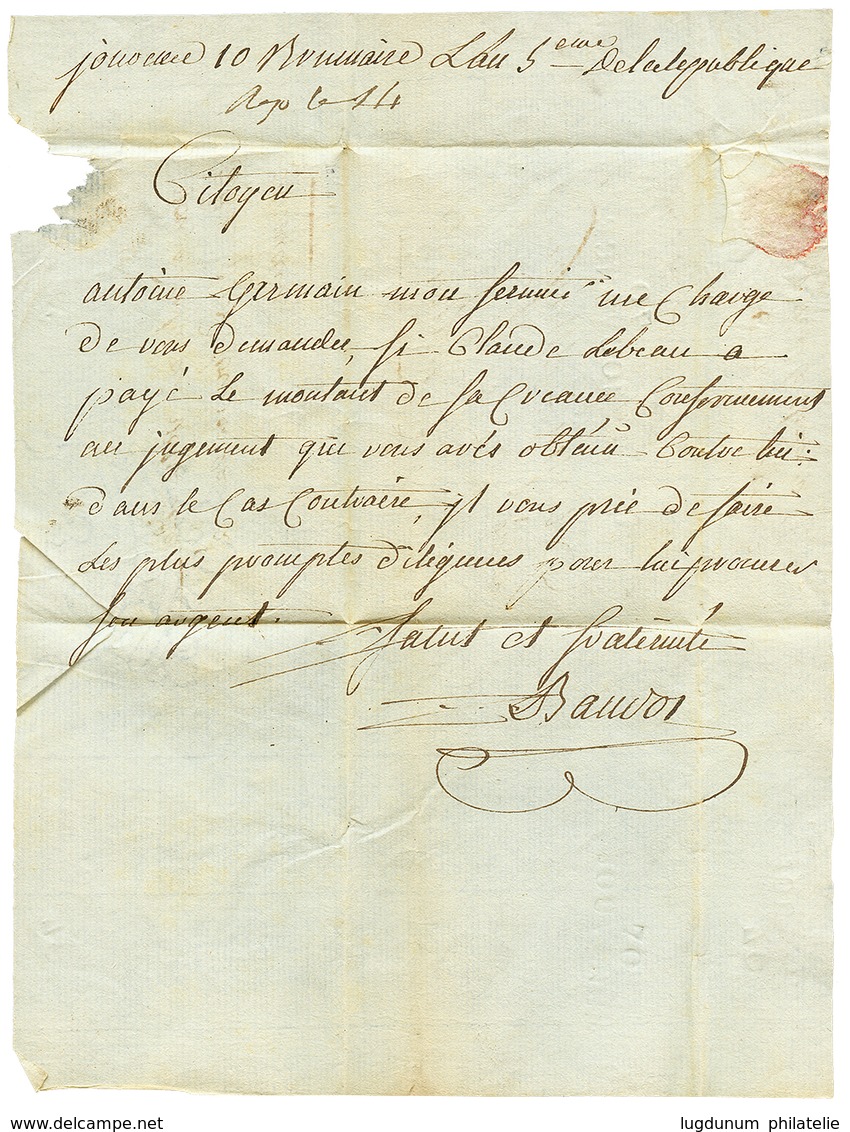 jonvenee 10 Brumaire L'an 5eme De la republique
Rep le 14
Citoyen
antoine Germain mon fermié me Charge
De vous demander, si Claude Lebeau a
payé Le montant de sa Creance Conformement
au jugement que vous avés obténu Contre lui.
Dans le Cas Contraire, jl vous prie de faire
Les plus promptes diligences pour lui procurer
son argent.
Salut et fraternité
Baudot
delcampe.net
lugdunum philatelie